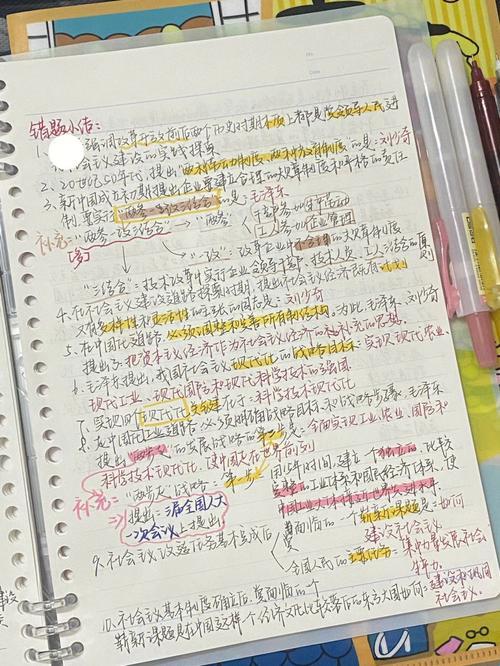 错题小结:
1. 强调改革开放前后两个历史时期本质上都是党领导人民进
行社会主义建设的实践探索
2. 20世纪50年代,提出"两种劳动制度、两种教育制度"的是:刘少奇
3. 新中国成立初期提出企业要建立合理的规章制度和严格的责任
制,要实行"两参一改三结合"的是:毛泽东
补充:"两参一改三结合"→"两参"
干部参加生产劳动
工人参加企业管理
→"一改":改革企业中不合理的规章制度
"三结合":技术改革中实行企业领导干部、技术人员、工人三结合的原则
4. 在社会主义建设道路探索时期,提出社会主义经济既有计划
又有多样性和灵活性的主张的国家是:刘少奇
5. 在中国工业道路,必须调整和完善所有制结构。为此,毛泽东、刘少奇
提出了:把资本主义经济作为社会主义经济的补充的思想。
6. 毛泽东提出,我国社会主义现代化的战略目标:实现现代农业
现代工业、现代国防和现代科学技术的强国
7. 实现四个现代化关键在于:科学技术现代化
8. 在中国工业道路,必须明确战略目标和战略步骤,毛泽东
提出"两步走"的发展战略的第二步是:全面实现工业、农业、国防和
科学技术现代化,使中国走在世界前列
补充:"两步走"战略:第一步
用15年时间,建立一个独立的、比较
完整的工业体系和国民经济体系,使
中国工业大体接近世界先进水平
⇒提出:三届全国人大
一次会议上提出
9. 社会主义改造任务基本完成后
党面临的一个崭新课题是:如何
建设社会主义
全国人民的主要任务:集中力量发展社会
生产力。
10. 社会主义基本制度确立后,党面临的一个
崭新课题是在中国这样一个经济文化比较落后的东方大国如何:建设和巩固
社会主义。